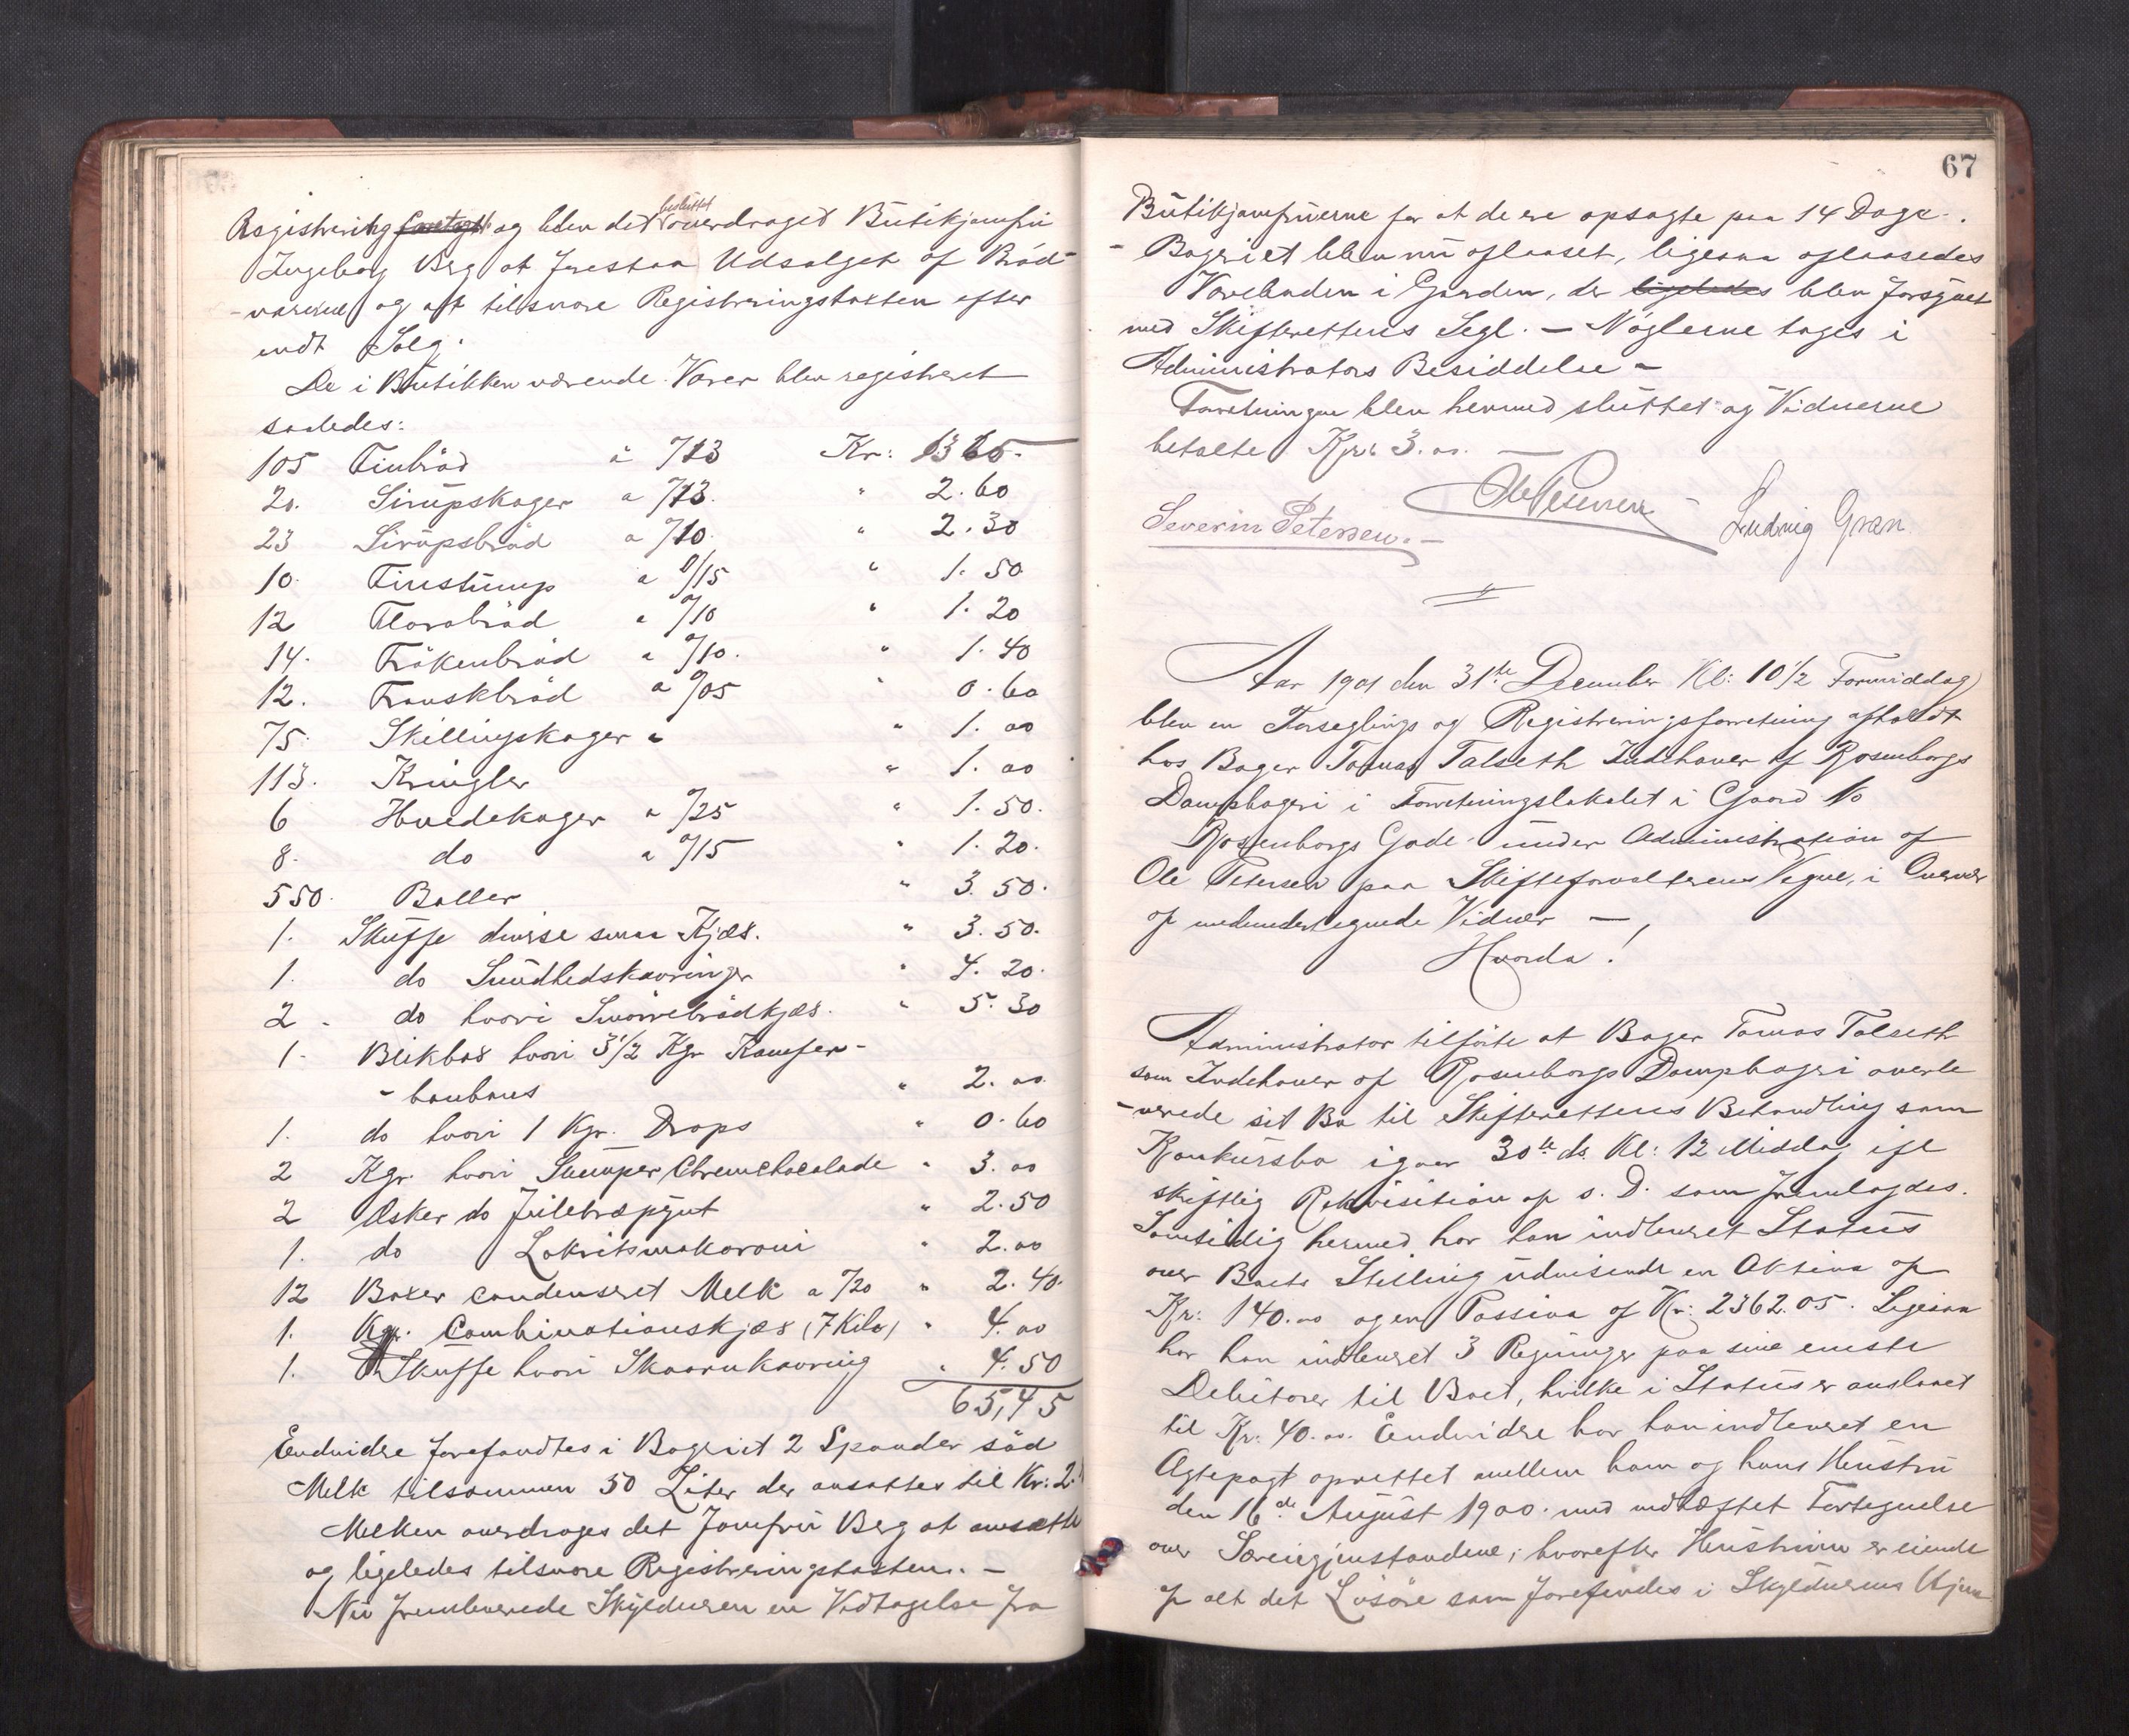 Registrering foretaget og blev det besluttet overdraget Butikjomfru
Ingeborg Berg at forestaa Udsalget af Bröd-
-varerne og at tilsvare Registreringstaxten efter
endt Salg.
De i Butikken værende Varer blev registreret
saaledes:
105 Finbröd à 0/13 Kr: 13 65.
20. Sirupskager a 0/13. " 2.60
23 Sirupsbröd a 0/10. " 2.30
10. Finstump a 0/15 " 1.50
12 Florabröd a 0/10 " 1.20
14. Frökenbröd a 0/10. " 1.40
12. Franskbröd a 0/05 " 0.60
75. Skillingskager a " 1.00
113. Kringler " 1.00
6 Hvedekager a 0/25 " 1.50.
8. do a 0/15 " 1.20.
550. Boller " 3.50.
1. Skuffe diverse smaa Kjæs. " 3.50.
1. do Sundhedskavringer " 4.20.
2. do hvori Smörrebrödkjæs. " 5.30
1. Blikbox hvori 3 1/2 Kgr Kamfer-
- bonbons " 2.00.
1. do hvori 1 Kgr. Drops " 0.60
2 Kgr. hvori Stumper Chremchocolade " 3.00
2 Æsker do Juletræpynt " 2.50
1. do Lakritsmakaroni " 2.00
12 Boxer condenseret Melk a 0/20 " 2.40.
1. Kgr. Combinationskjæs (7 Kilo) " 4.00
1. Skuffe hvori Skaarnkavring " 4.50
65,45
Endvidre forefandtes i Bageriet 2 Spander söd
Melk tilsammen 50 Liter der ansattes til Kr: 2.
Melken overdroges det Jomfru Berg at omsætte
og ligeledes tilsvare Registreringstaxten. -
Nu fremleverede Skyldneren en Vedtagelse fra
67
Butikjomfruerne for at de ere opsagte paa 14 Dage.
- Bageriet blev nu aflaaset, ligesaa aflaasedes
Vareboden i Gaarden, der ligeledes blev forsynet
med Skifterettens Segl. - Nöglerne toges i
Administrators Besiddelse -
Forretningen blev hermed sluttet og Vidnerne
betalte Kr: 3.00. -
Ole Petersen
Severin Petersen. - Ludvig Gran
Aar 1901 den 31te December Kl: 10 1/2 Formiddag
blev en Forseglings og Registreringsforretning afholdt
hos Bager Tomas Talseth Indehaver af Rosenborgs
Dampbageri i Forretningslokalet i Gaard No
Rosenborgs Gade under Administration af
Ole Petersen paa Skifteforvalterens Vegne, i Overvær
af medundertegnede Vidner -,
Hvorda!
Administrator tilförte at Bager Tomas Talseth
som Indehaver af Rosenborgs Dampbageri overle
-verede sit Bo til Skifterettens Behandling som
Konkursbo igaar 30te ds. Kl: 12 Middag ifl
skriftlig Rekvisition af s. D. som fremlagdes.
Samtidig hermed har han indleveret Status
over Boets Stilling udvisende en Aktiva af
Kr: 140.00 og en Passiva af Kr: 2362.05. Ligesaa
har han indleveret 3 Regninger paa sine eneste
Debitorer til Boet, hvilke i Status er anslaaet
til Kr: 40.00. Endvidre har han indleveret en
Ægtepagt oprettet mellem ham og hans Hustru
den 16de August 1900. med vedhæftet Fortegnelse
over Særeiegjenstandene, hvorefter Hustruen er eiende
af alt det Lösöre som forefindes i Skyldnerens Hjem